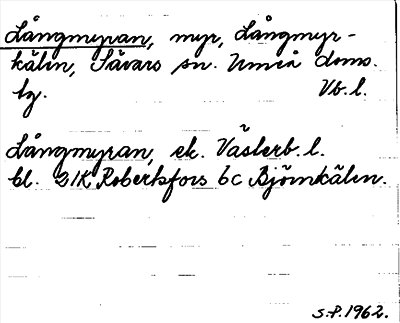 Långmyran, myr, Långmyr-
kälen, Sävars sn. Umeå doms.
lg. Vb. l.
Långmyran, ek. Västerb. l.
bl. 21K Robertsfors 6c Björnkälen.
S.P. 1962.